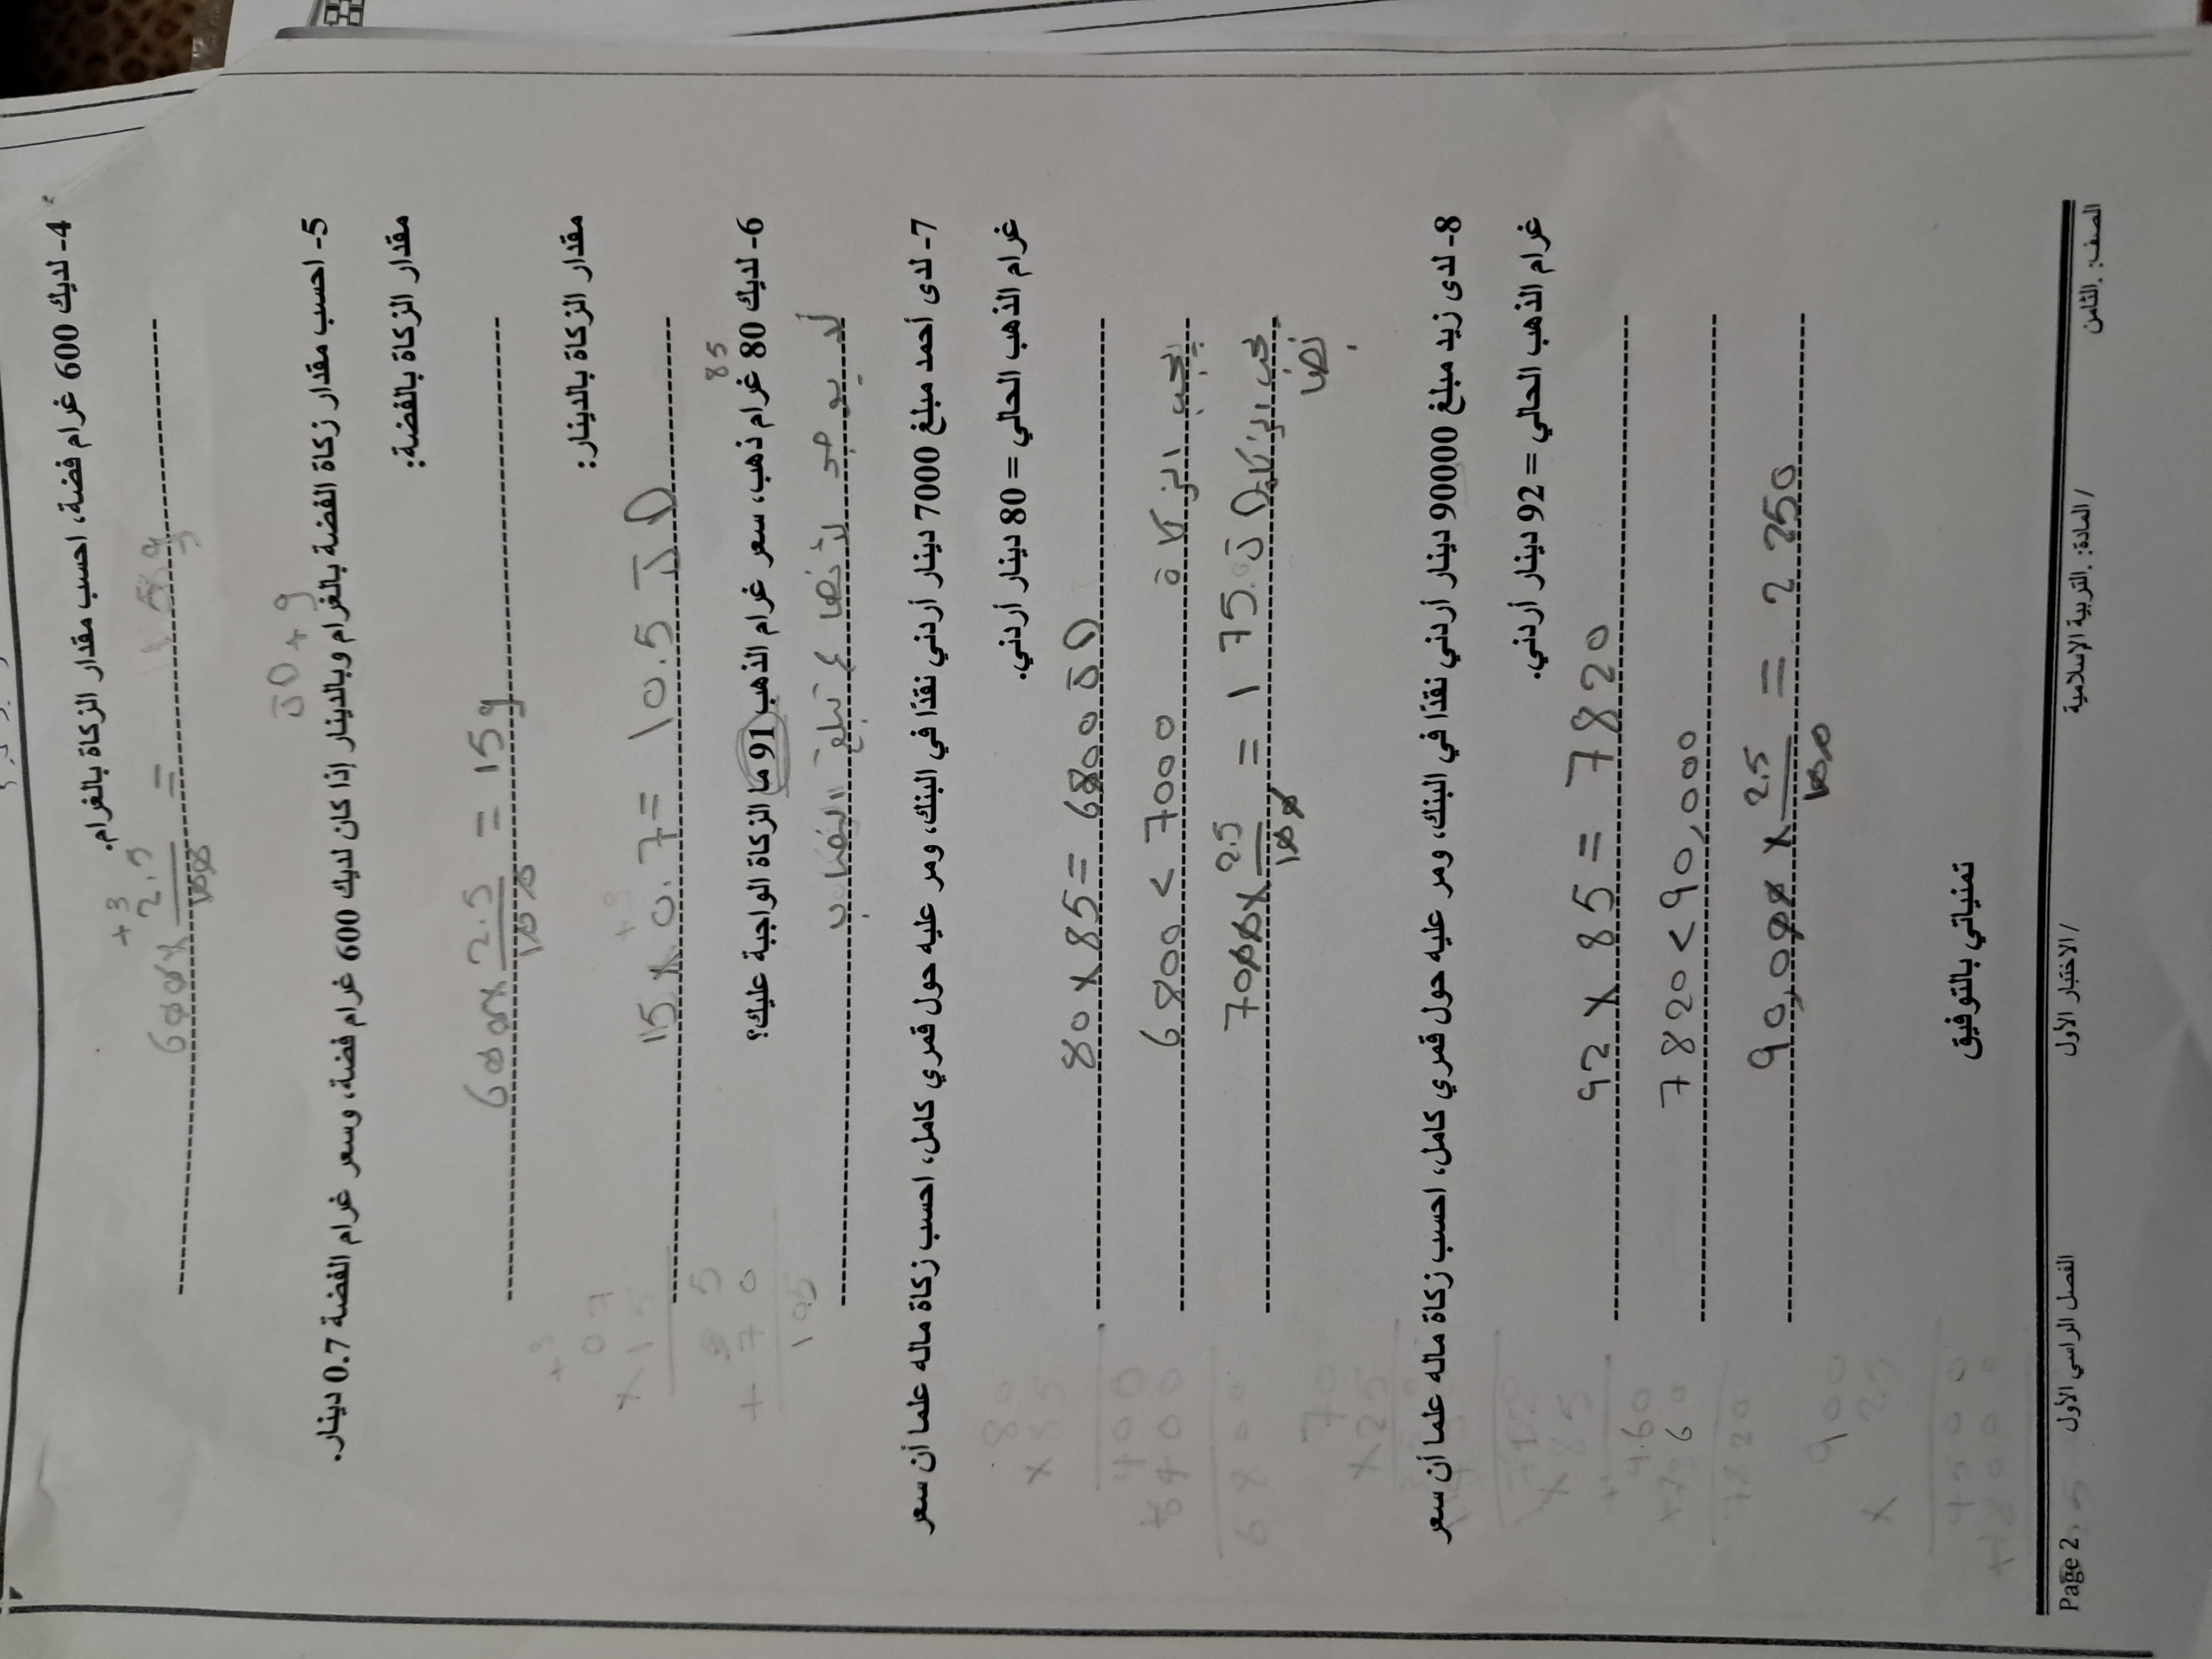 4- لديك 600 غرام فضة، احسب مقدار الزكاة بالغرام.
600 x 2.5/100 = 15 g
JD + g
5- احسب مقدار زكاة الفضة بالغرام وبالدينار إذا كان لديك 600 غرام فضة، وسعر غرام الفضة 0.7 دينار.
مقدار الزكاة بالفضة:
600 x 2.5/100 = 15g
مقدار الزكاة بالدينار:
15 x 0.7 = 10.5 JD
85
6- لديك 80 غرام ذهب، سعر غرام الذهب 91 ما الزكاة الواجبة عليك؟
لا يوجد
7- لدى أحمد مبلغ 7000 دينار أردني نقدًا في البنك، ومر عليه حول قمري كامل، احسب زكاة ماله علما أن سعر
غرام الذهب الحالي = 80 دينار أردني.
80 x 85 = 6800 JD
6800 < 7000 يجب الزكاة
7000 x 2.5/100 = 175 JD
8- لدى زيد مبلغ 90000 دينار أردني نقدًا في البنك، ومر عليه حول قمري كامل، احسب زكاة ماله علما أن سعر
غرام الذهب الحالي = 92 دينار أردني.
92 x 85 = 7820
7820 < 90,000
90,000 x 2.5/100 = 2250
تمنياتي بالتوفيق
الصف: .الثامن / المادة: .التربية الإسلامية / الاختبار الأول الفصل الراسي الأول Page 2